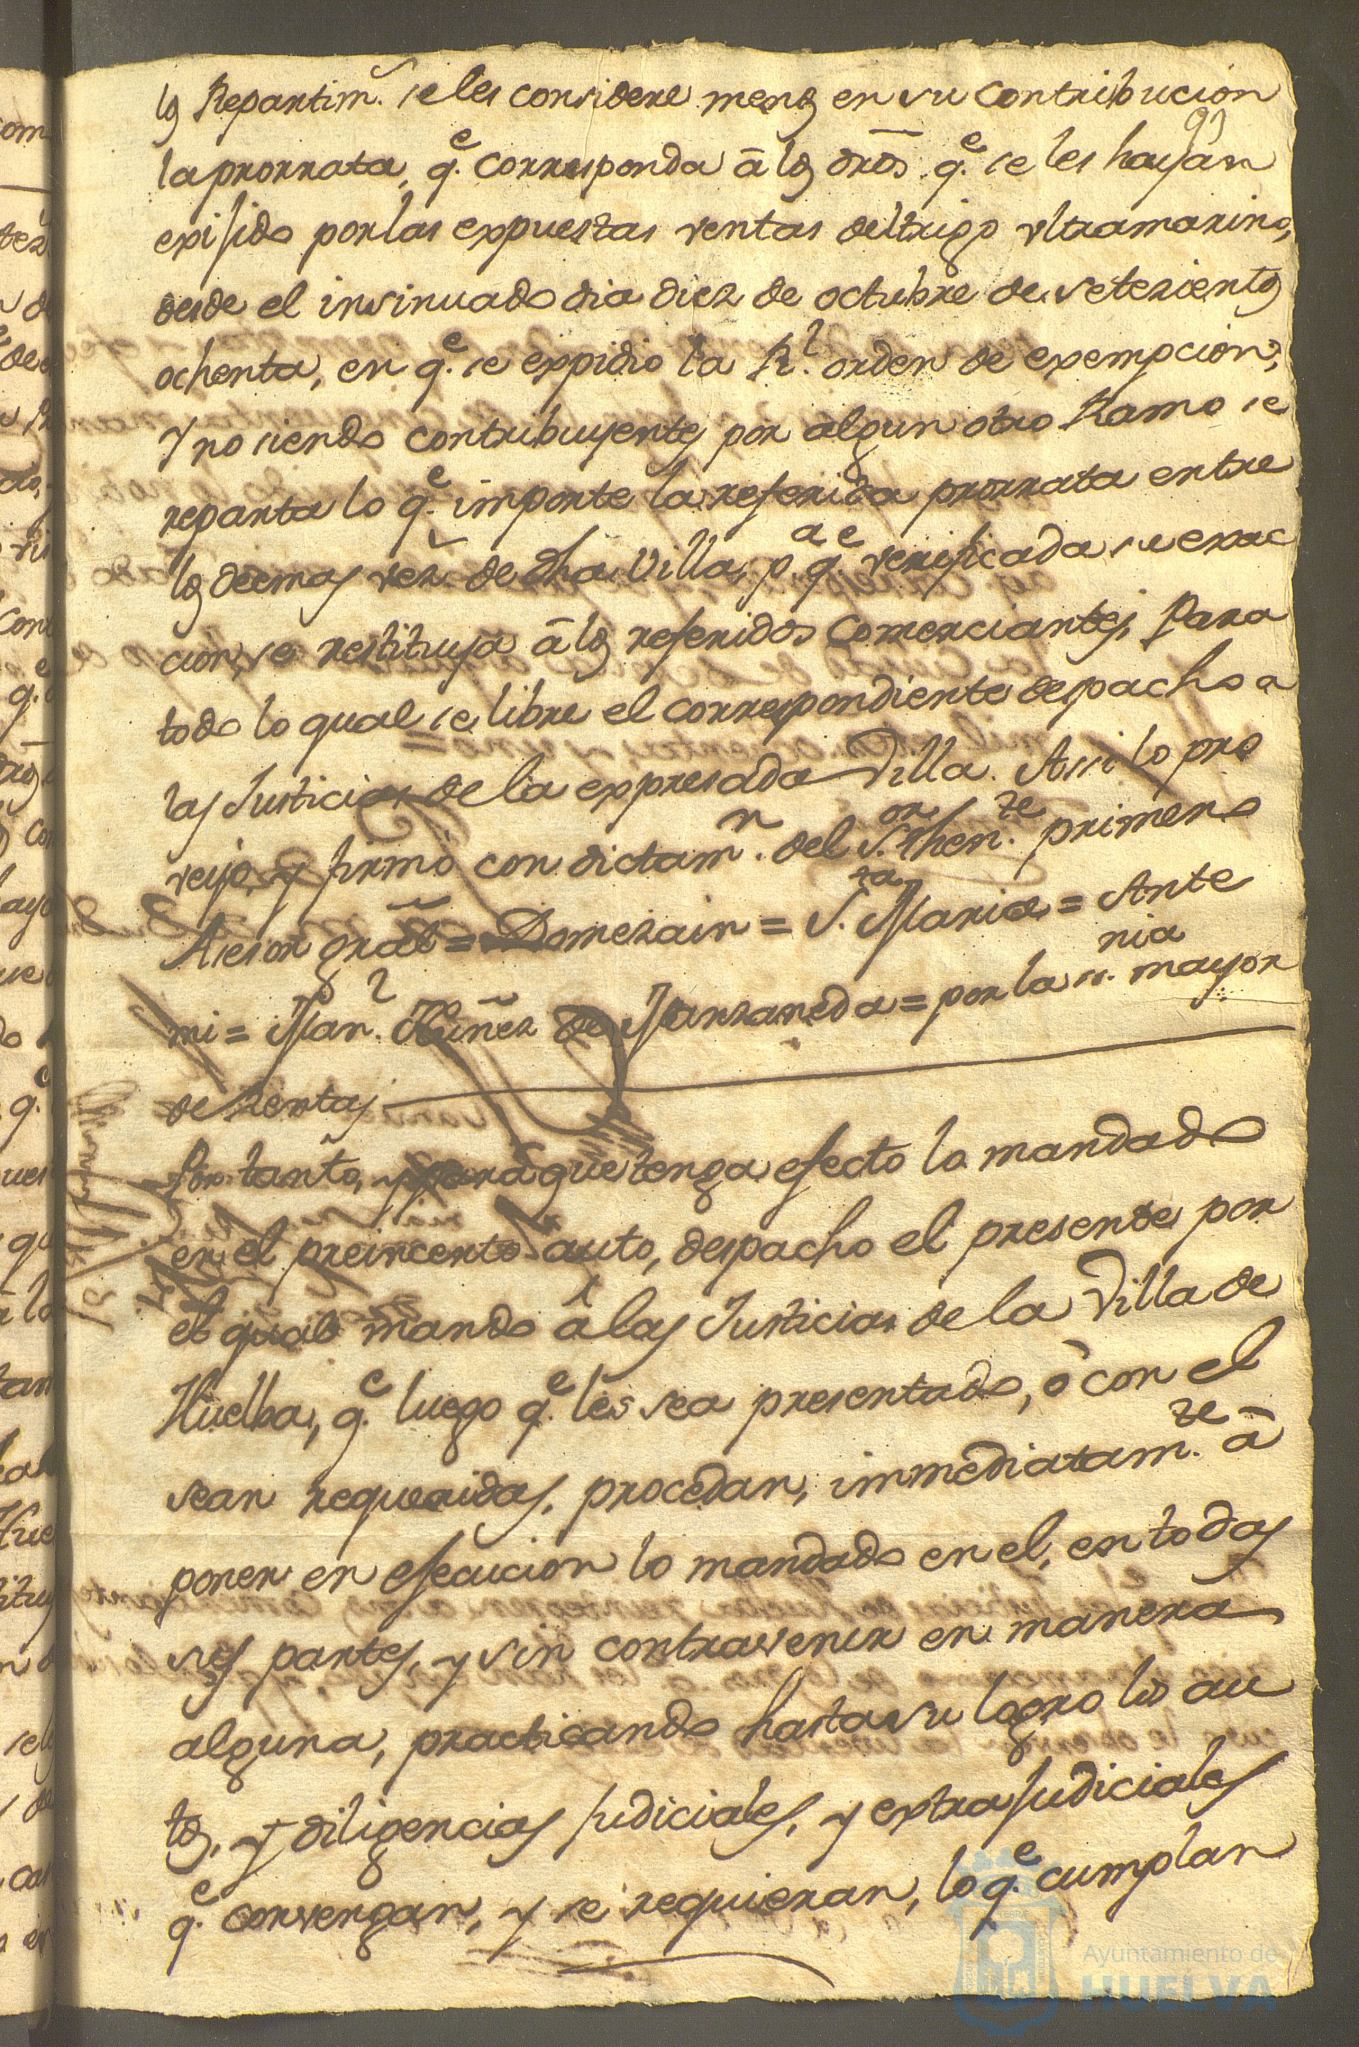 los Repartim.s se les considere menos en su contribucion
93
la prorrata, q.e corresponda â los dros. q.e se les hayan
exijido por las expuestas ventas del trigo ultramarino,
desde el insinuado dia diez de octubre de setezientos
ochenta, en q.e se expidio la R.l orden de exempcion,
Y no siendo contribuyentes por algun otro Ramo se
reparta lo q.e importe la referida prorrata entre
los demas vez.s de dha Villa, p.a q.e verificada su exac
cion, se restituya â los referidos comerciantes, Para
todo lo qual se libre el correspondiente despacho a
las Justicias de la expresada Villa. Assi lo pro
veyo, y firmó con dictam.n del S.or Then.te primero
Asesor gral = Domezain = S.ta Maria = Ante
mi = Man.l Nuñez de Manzaneda = por la s.nia mayor
de Rentas
Por tanto, y para que tenga efecto lo mandado
en el preincerto auto, despacho el presente por
el qual mando â las Justicias de la Villa de
Huelba, q.e luego q.e les sea presentado, ô con el
sean requeridas, procedan, immediatam.te â
poner en ejecucion lo mandado en el, en todas
sus partes, y sin contravenir en manera
alguna, practicando hasta su logro los au
tos, y diligencias judiciales, y extrajudiciales
q.e convengan, y se requieran, lo q.e cumplan
Ayuntamiento de
HUELVA